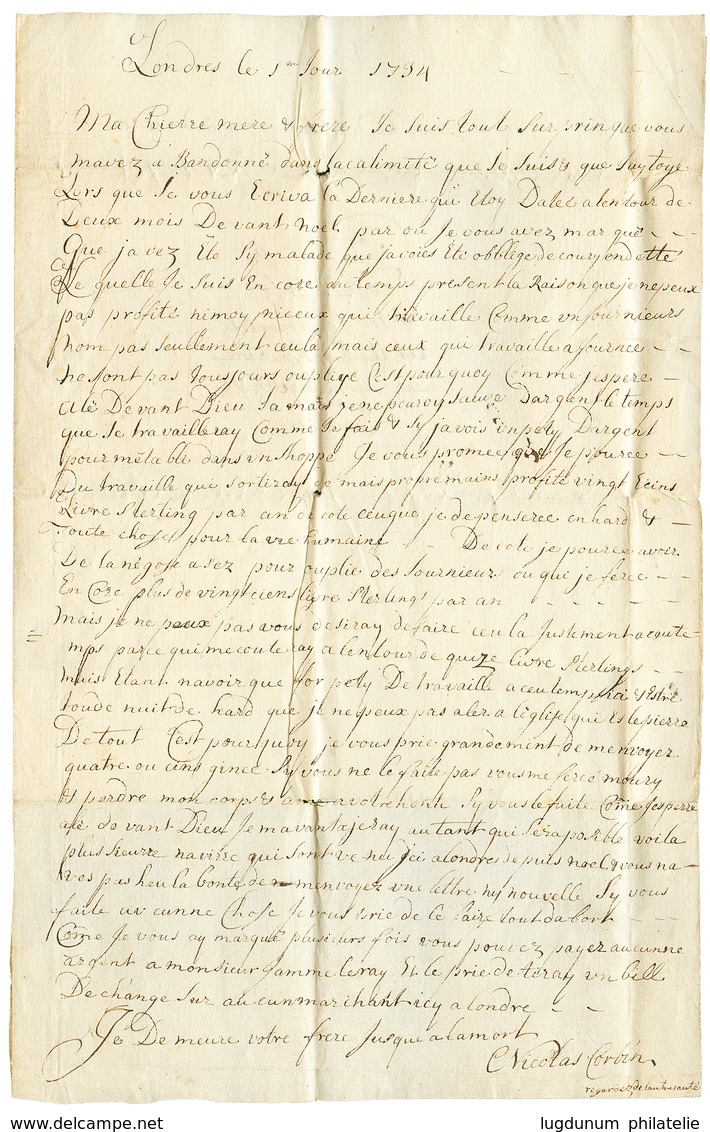 Londres le 1er Jour 1734
Ma Chierre mere & frere Je suis tout surprin que vous
mavez a Bandonné dans lacalimité que Je suis & que suytoye
Lors que Je vous Ecriva la Derniere qui Etoy Daleé a lentour de
Deux mois De vant noel par ou Je vous avez marqué
Que javez Ete sy malade que javoies Eté obblige de coury endetté
Le quelle Je suis En core autemps present la Raison que je ne peux
pas profité ni moy ni ceux qui travaille Comme un Journieurs
nom pas seullement ceula mais ceux qui travaille a Journee
ne sont pas Tousjours ouplige Cest pour quoy Comme jespere
alé Devant Dieu Jamais je ne pouroy sauvé Dargent le temps
que Je travailleray Comme Je fais & sy javois un pety Dargent
pour métabli dans un shoppe Je vous promee que Je pource
Du travaille qui sortiray de mais propre mains profité vingt & cins
Livre sterling par an de cote ceuque je depenseree en hard &
Toute chose pour la vie humaine De cote je pouree avoir
De la négose asez pour ouplie des Journieurs ou qui je feree
En Core plus de vingt ciens livre sterlings par an
mais je ne peux pas vous desiray de faire ceula Justement a ceute
mps parce qui me couteray a lentour de quize livre sterlings
mais Etant navoir que for pety De travaille a ceutemps ici & Estre
toude nuit de hard que je ne peux pas aler a léglise qui & le pierre
De tout Cest pour quoy je vous prie grandement de menvoyez
quatre ou cins ginee sy vous ne le faite pas vous me feree moury
& perdre mon corps & ame a votre honte sy vous le faite Come Jesperre
alé de vant Dieu Je mavantajeray autant qui sera posible voila
plussieurre navirre qui sont ve nu ici a londres depuis noel & vous na
vez pas heu la bonte de menvoyez une lettre ny nouvelle sy vous
faite au cunne Chose Je vous prie de le faire tout dabort
Come Je vous ay marqué plusieurs fois vous pouvez payez aucunne
argent a monsieur Et le prie de tiray un bill
De change sur au cun marchant icy a londre
Je De meure votre frere Jusque a lamort
Nicolas Corbin
regardez de lautre cauté
lugdunum philatelie